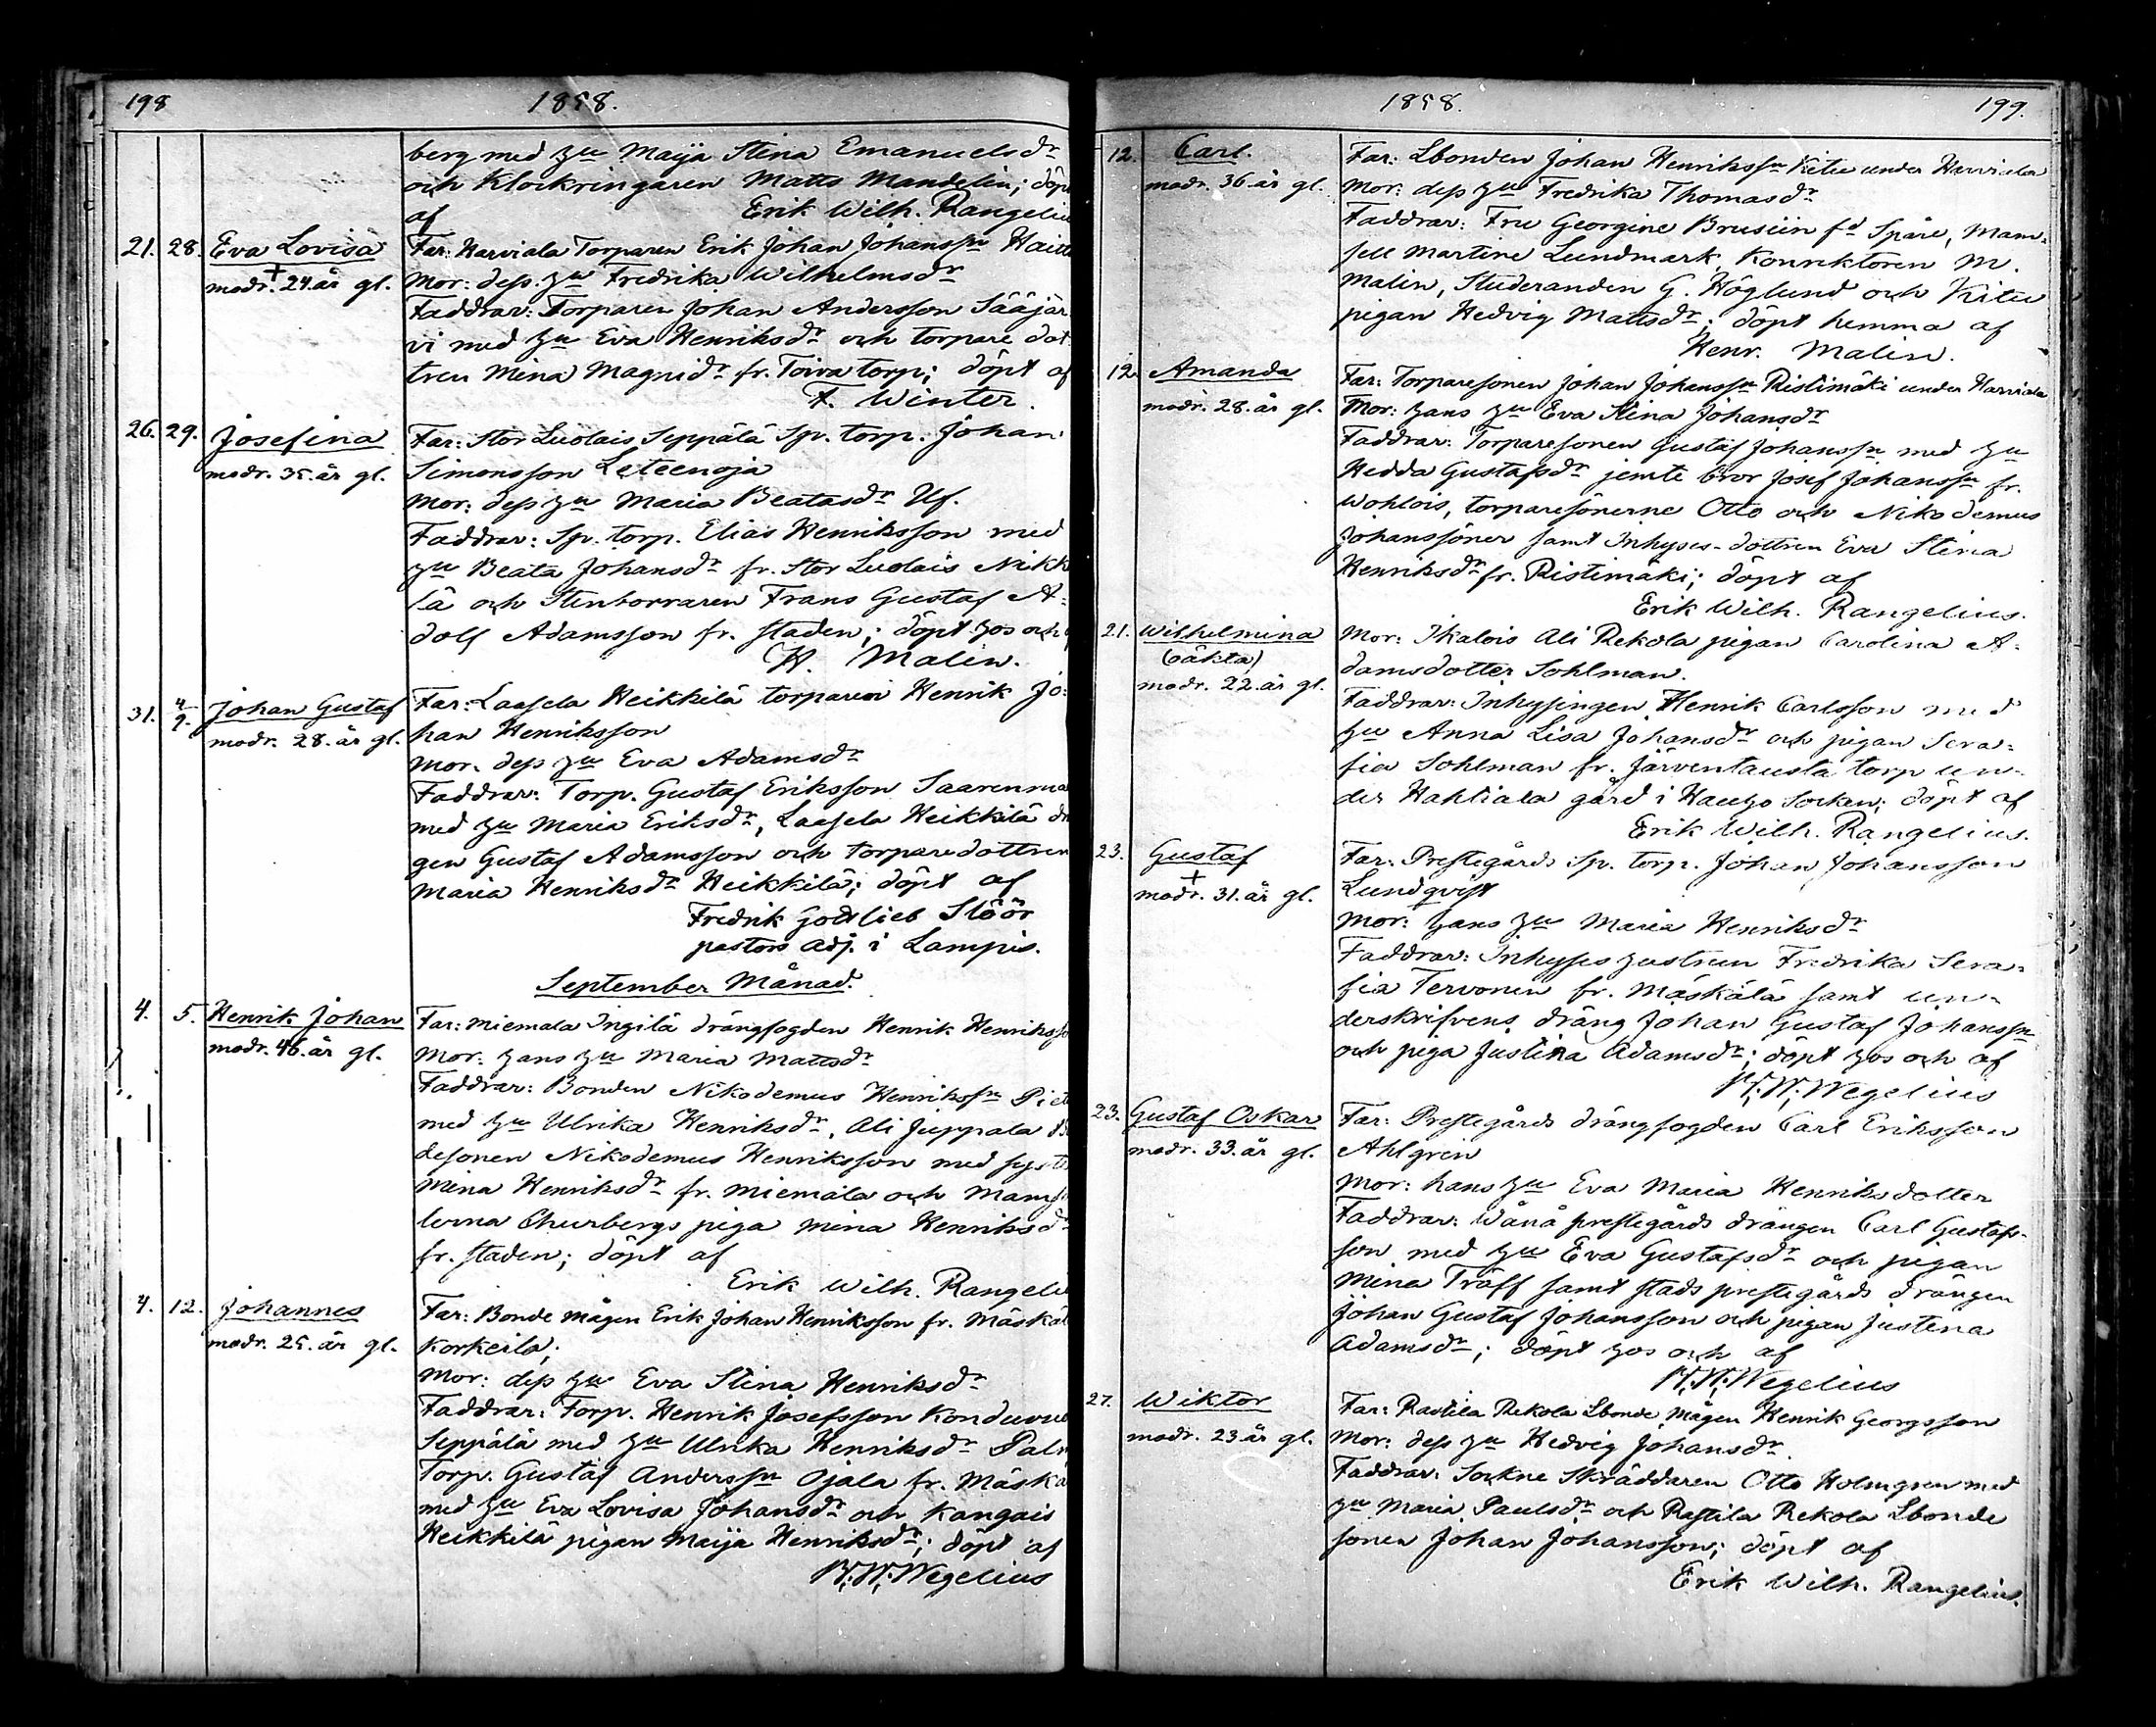 198
1858.
berg med hu Maija Stina Emanuelsdr
och Klockringaren Matts Mandelin; döpt
af Erik Wilh. Rangelius
21. 28. Eva Lovisa Far: Harviala Torparen Erik Johan Johanssn
+
modr. 24. år gl. Mor: dess hu Fredrika Wilhelmsdr
Faddrar: Torparen Johan Andersson Sääjär
vi med hu Eva Henriksdr och torpare dot
tren Mina Magnidr fr. Toiva torp; döpt af
F. Winter.
26. 29. Josefina Far: Stor Luolais Seppälä Sp. torp. Johan
modr. 35. år gl. Simonsson Leteenoja
Mor: dess hu Maria Beatasdr Uf.
Faddrar: Sp. torp. Elias Henriksson med
hu Beata Johansdr fr. Stor Luolais Nikk
lä och Stenborraren Frans Gustaf A=
dolf Adamsson fr. staden; döpt hos och
H. Malin.
31. 4/9. Johan Gustaf Far: Laasela Heikkilä torparen Henrik Jo=
modr. 28. år gl. han Henriksson
Mor: dess hu Eva Adamsdr
Faddrar: Torp. Gustaf Eriksson Saarenmaa
med hu Maria Eriksdr, Laasela Heikkilä drä
gen Gustaf Adamsson och torparedottren
Maria Henriksdr Heikkilä; döpt af
Fredrik Gottlieb Stöör
pastors adj. i Lampis.
September Månad.
4. 5. Henrik Johan Far: Miemala Ingilä drängfogden Henrik Henriksso
modr. 46. år gl. Mor: hans hu Maria Mattsdr
Faddrar: Bonden Nikodemus Henrikssn
med hu Ulrika Henriksdr, Ali Juppala
desonen Nikodemus Henriksson med syst
Mina Henriksdr fr. Miemala och Mamse
lerna Churbergs piga Mina Henriksdr
fr. staden; döpt af
Erik Wilh. Rangeliu
4. 12. Johannes Far: Bonde mågen Erik Johan Henriksson fr. Mäskäl
modr. 25. år gl. Korkeila;
Mor: dess hu Eva Stina Henriksdr
Faddrar: Torp. Henrik Josefsson
Seppälä med hu Ulrika Henriksdr
Torp. Gustaf Anderssn Ojala fr. Mäskä
med hu Eva Lovisa Johansdr och Kangais
Heikkilä pigan Maija Henriksdr; döpt af
W. W. Wegelius
1858.
199.
12. Carl. Far: Lbonden Johan Henrikssn Kitu under Harviala
modr. 36. år gl. Mor: dess hu Fredrika Thomasdr
Faddrar: Fru Georgine Brusiin fd Spåre, Mam=
sell Martine Lundmark, Konrektoren M.
Malin, Studeranden G. Höglund och Kitu
pigan Hedvig Mattsdr; döpt hemma af
Henr. Malin.
12. Amanda Far: Torparesonen Johan Johanssn Ristimäki under Harviala
modr. 28. år gl. Mor: hans hu Eva Stina Johansdr
Faddrar: Torparesonen Gustaf Johanssn med hu
Hedda Gustafsdr jemte bror Josef Johanssn fr.
Wohlois, torparesönerne Otto och Nikodemus
Johanssöner samt Inhyses-dottren Eva Stina
Henriksdr fr. Ristimäki; döpt af
Erik Wilh. Rangelius.
21. Wilhelmina Mor: Ikalois Ali Rekola pigan Carolina A=
(oäkta) damsdotter Sohlman.
modr. 22. år gl. Faddrar: Inhysingen Henrik Carlsson med
hu Anna Lisa Johansdr och pigan Sera=
fia Sohlman fr. Järventausta torp un=
der Hahtiala gård i Hauho Socken; döpt af
Erik Wilh. Rangelius.
23. Gustaf Far: Prestegårds Sp. torp. Johan Johansson
+
modr. 31. år gl. Lundqvist
Mor: hans hu Maria Henriksdr
Faddrar: Inhyses hustrun Fredrika Sera=
fia Tervonen fr. Mäskälä samt un=
derskrifvens dräng Johan Gustaf Johanssn
och piga Justina Adamsdr; döpt hos och af
W. W. Wegelius
23. Gustaf Oskar Far: Prestegårds drängfogden Carl Eriksson
modr. 33. år gl. Ahlgren
Mor: hans hu Eva Maria Henriksdotter
Faddrar: Wånå prestegårds drängen Carl Gustafs=
son med hu Eva Gustafsdr och pigan
Mina Träff samt stads prestegårds drängen
Johan Gustaf Johansson och pigan Justina
Adamsdr; döpt hos och af
W. W. Wegelius
27. Wiktor Far: Rastila Rekola Lbonde mågen Henrik Georgsson
modr. 23. år gl. Mor: dess hu Hedvig Johansdr
Faddrar: Sockne Skräddaren Otto Holmgren med
hu Maria Paulsdr och Rastila Rekola Lbonde
sonen Johan Johansson; döpt af
Erik Wilh. Rangelius.